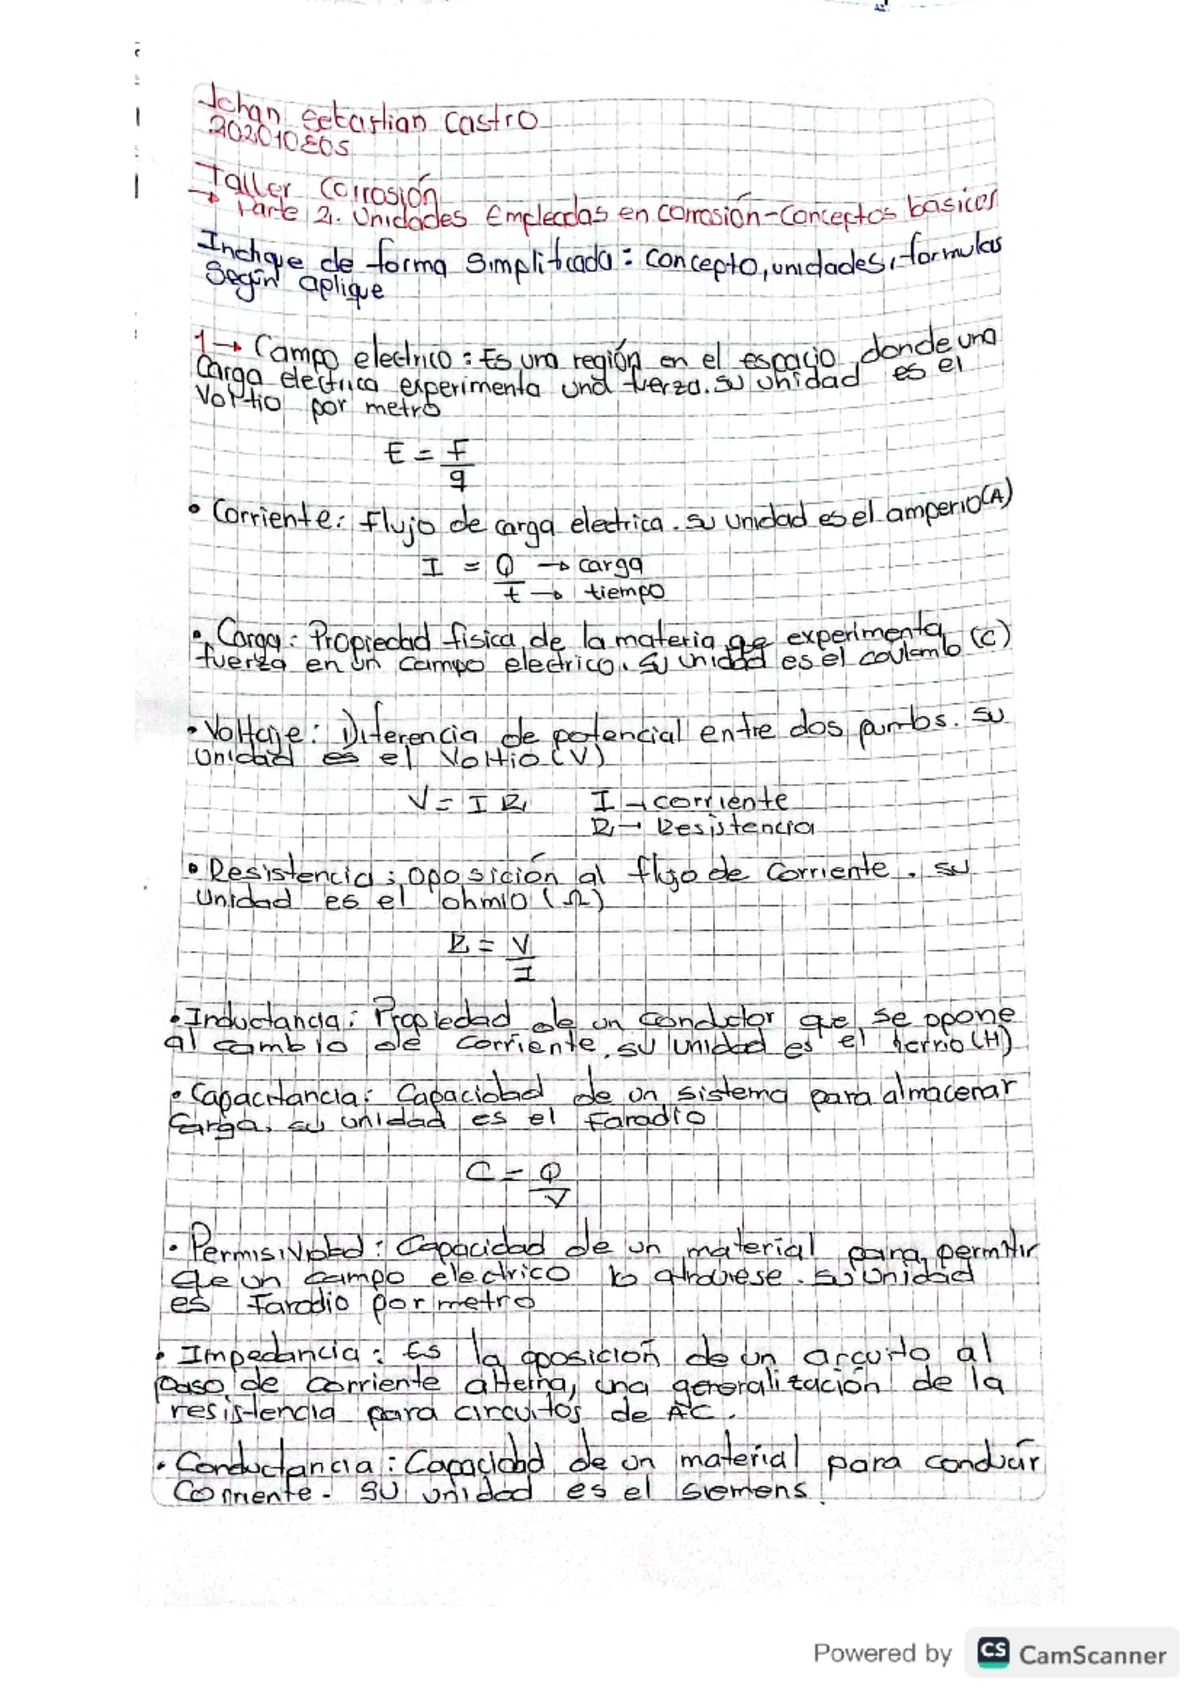 Johan Sebastian Castro
Taller Corrosión
→ Parte 2. Unidades Empleadas en corrosión-Conceptos basicos
Indique de forma simplificada: concepto, unidades, formulas
Según aplique
1→ Campo electrico: Es una región en el espacio donde una
Carga electrica experimenta una fuerza. su unidad es el
Voltio por metro
E = F
q
• Corriente: Flujo de carga electrica. su unidad es el amperio (A)
I = Q → carga
t → tiempo
• Carga: Propiedad fisica de la materia que experimenta
fuerza en un campo electrico. su unidad es el coulomb (C)
• Voltaje: Diferencia de potencial entre dos puntos. su
Unidad es el Voltio (V)
V = I R I → corriente
R → Resistencia
• Resistencia: oposición al flujo de Corriente. su
Unidad es el ohmio (Ω)
R = V
I
• Inductancia: Propiedad de un conductor que se opone
al cambio de corriente, su unidad es el henrio (H)
• Capacitancia: Capacidad de un sistema para almacenar
Carga, su unidad es el Faradio
C = Q
V
• Permisividad: Capacidad de un material para permitir
que un campo electrico lo atraviese. su unidad
es Faradio por metro
• Impedancia: Es la oposición de un circuito al
paso de corriente alterna, una generalización de la
resistencia para circuitos de AC.
• Conductancia: Capacidad de un material para conducir
Corriente. su unidad es el siemens.
Powered by CS CamScanner